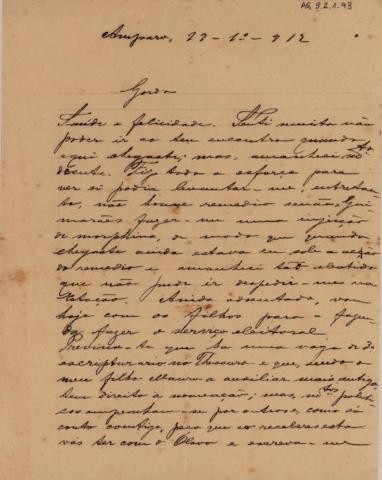 AG, 9.2.1.93
Amparo, 22-1º-912
Gordo
Saúde e felicidade. Senti muito não
poder ir ao teu encontro quando
aqui chegaste; mas, amanheci mto
doente. Fiz todo o esforço para
ver si podia levantar-me, entretan-
to, não houve remedio senão, Gui-
marães fazer-me uma injeção
de morphina, de modo que quando
chegaste ainda estava eu sob a acção
do remedio e amanheci tão abatido
que não pude ir despedir-me na
Estação. Ainda adoentado, vou
hoje com os filhos para a fazen-
da fazer o serviço eleitoral
que ha uma vaga de
escripturario no Thesouro e que, sendo o
meu filho Mauro o auxiliar mais antigo,
tem direito à nomeação; mas, mtos politi-
cos empenham-se por outros e, como só
conto comtigo, peço que ao receberes esta
vás ter com o Olavo e escreva-me